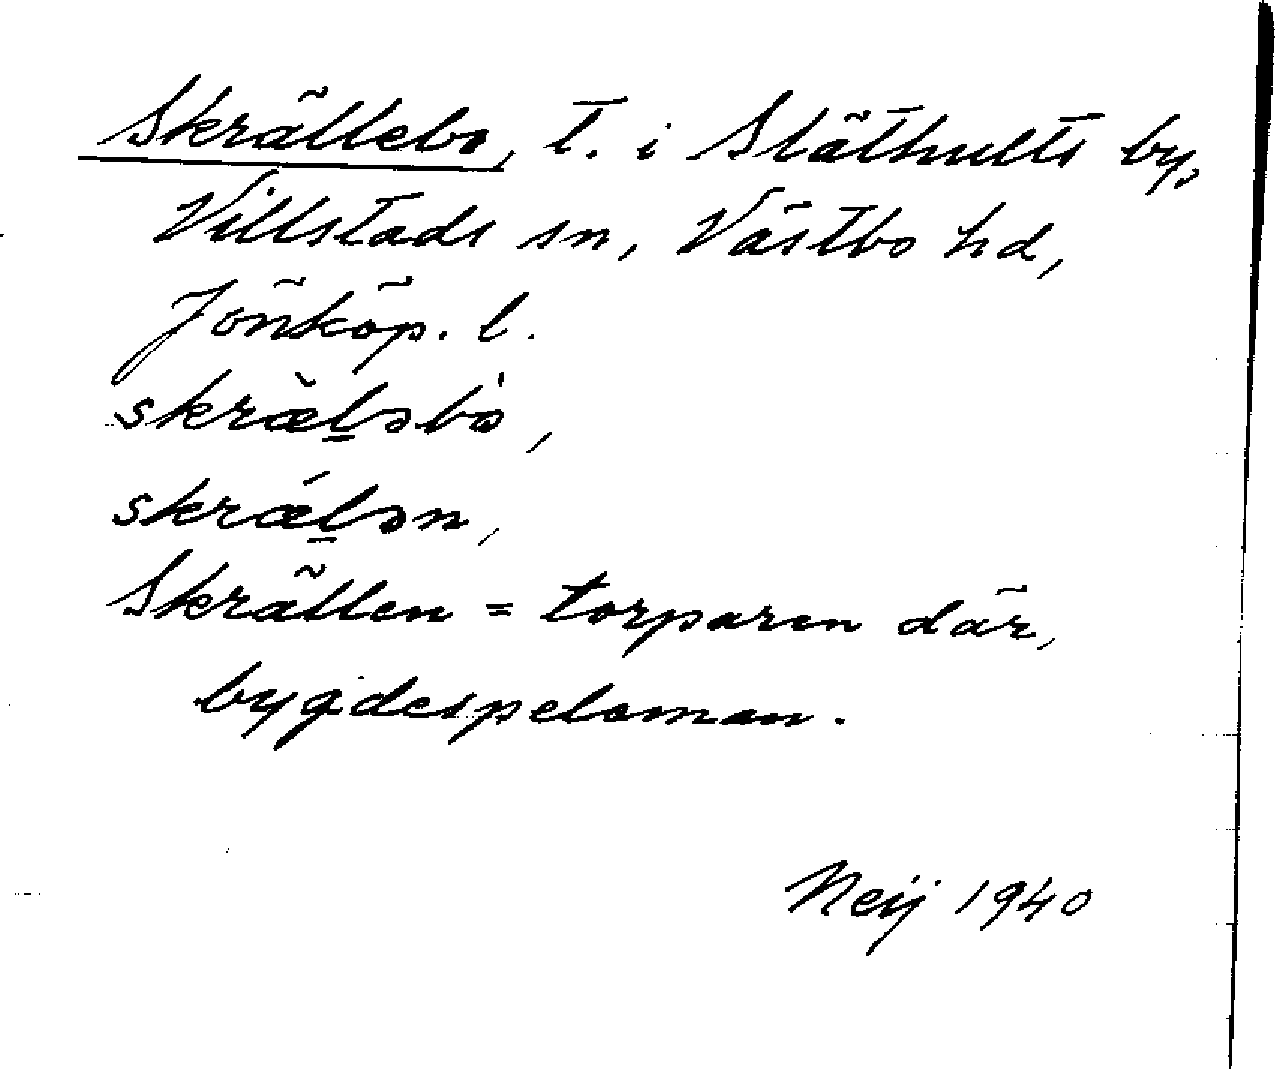 Skrällebo, t. i Stäthults by,
Villstads sn, Västbo hd,
Jönköp. l.
skræ̀l̲əbò,
skrǽl̲ən,
Skrällen = torparen där,
bygdespeleman.
Neij 1940